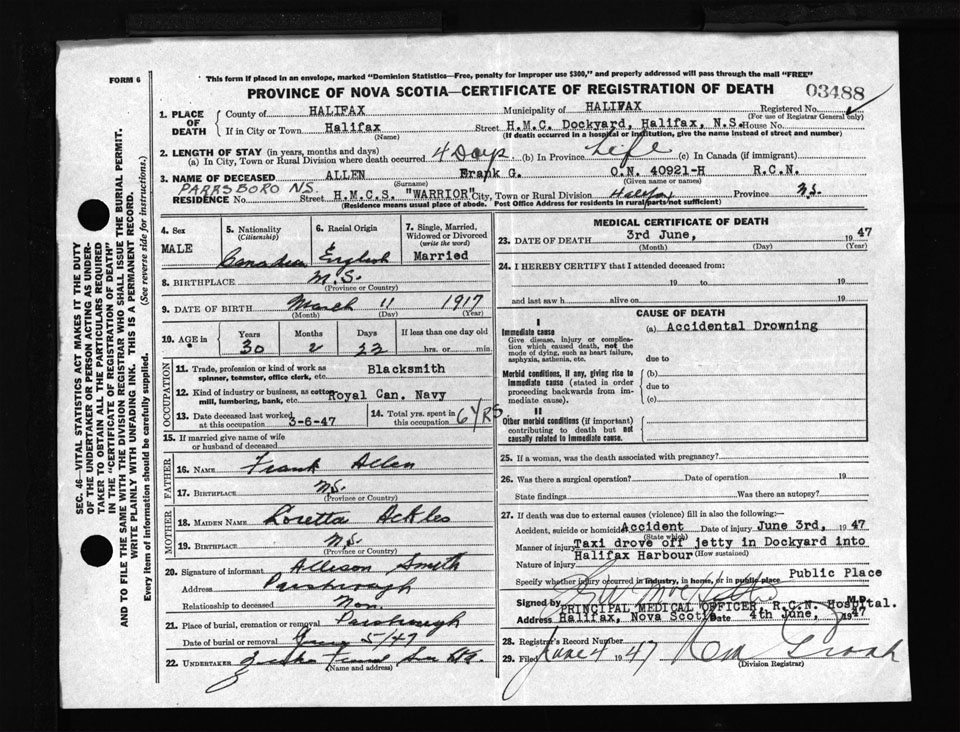 FORM 6
This form if placed in an envelope, marked "Dominion Statistics—Free, penalty for improper use $300," and properly addressed will pass through the mail "FREE"
PROVINCE OF NOVA SCOTIA—CERTIFICATE OF REGISTRATION OF DEATH
03488
1. PLACE OF DEATH
County of HALIFAX Municipality of HALIFAX Registered No.
(For use of Registrar General only)
If in City or Town Halifax Street H.M.C. Dockyard, Halifax, N.S. House No.
(Name) (If death occurred in a hospital or institution, give the name instead of street and number)
2. LENGTH OF STAY (in years, months and days)
(a) In City, Town or Rural Division where death occurred 4 Days. (b) In Province Life (c) In Canada (if immigrant)
3. NAME OF DECEASED ALLEN Frank G. O.N. 40921-H R.C.N.
(Surname) (Given name or names)
PARRSBORO NS.
RESIDENCE No. Street H.M.C.S. "WARRIOR" City, Town or Rural Division Halifax Province N.S.
(Residence means usual place of abode. Post Office Address for residents in rural parts not sufficient)
4. Sex
MALE
5. Nationality
(Citizenship)
Canadian
6. Racial Origin
English
7. Single, Married, Widowed or Divorced
(write the word)
Married
8. BIRTHPLACE N.S.
(Province or Country)
9. DATE OF BIRTH March 11 1917
(Month) (Day) (Year)
10. AGE in Years Months Days If less than one day old
30 2 22 hrs. or min.
OCCUPATION
11. Trade, profession or kind of work as spinner, teamster, office clerk, etc. Blacksmith
12. Kind of industry or business, as cotton mill, lumbering, bank, etc. Royal Can. Navy
13. Date deceased last worked at this occupation 3-6-47
14. Total yrs. spent in this occupation 6 YRS.
15. If married give name of wife or husband of deceased
FATHER
16. NAME Frank Allen
17. BIRTHPLACE N.S.
(Province or Country)
MOTHER
18. MAIDEN NAME Loretta Ackles
19. BIRTHPLACE N.S.
(Province or Country)
20. Signature of informant Allison Smith
Address Parrsborough
Relationship to deceased Non.
21. Place of burial, cremation or removal Parsborough
Date of burial or removal June 5/47
22. UNDERTAKER
(Name and address)
MEDICAL CERTIFICATE OF DEATH
23. DATE OF DEATH 3rd June, 1947
(Month) (Day) (Year)
24. I HEREBY CERTIFY that I attended deceased from:
19 to 19
and last saw h alive on 19
CAUSE OF DEATH
I
Immediate cause
Give disease, injury or complication which caused death, not the mode of dying, such as heart failure, asphyxia, asthenia, etc.
(a) Accidental Drowning
due to
Morbid conditions, if any, giving rise to immediate cause (stated in order proceeding backwards from immediate cause).
(b)
due to
(c)
II
Other morbid conditions (if important) contributing to death but not causally related to immediate cause.
25. If a woman, was the death associated with pregnancy?
26. Was there a surgical operation? Date of operation 19
State findings Was there an autopsy?
27. If death was due to external causes (violence) fill in also the following:
Accident, suicide or homicide Accident Date of injury June 3rd, 1947
(State which)
Manner of injury Taxi drove off jetty in Dockyard into
Halifax Harbour (How sustained)
Nature of injury
Specify whether injury occurred in industry, in home, or in public place Public Place
Signed by M.D.
PRINCIPAL MEDICAL OFFICER, R.C.N. Hospital.
Halifax, Nova Scotia Date 4th June, 1947
28. Registrar's Record Number
29. Filed June 4 1947
(Division Registrar)
SEC. 46—VITAL STATISTICS ACT MAKES IT THE DUTY
OF THE UNDERTAKER OR PERSON ACTING AS UNDERTAKER
TO OBTAIN ALL THE PARTICULARS REQUIRED
IN THE "CERTIFICATE OF REGISTRATION OF DEATH"
AND TO FILE THE SAME WITH THE DIVISION REGISTRAR WHO SHALL ISSUE THE BURIAL PERMIT.
WRITE PLAINLY WITH UNFADING INK. THIS IS A PERMANENT RECORD.
Every item of information should be carefully supplied. (See reverse side for instructions.)